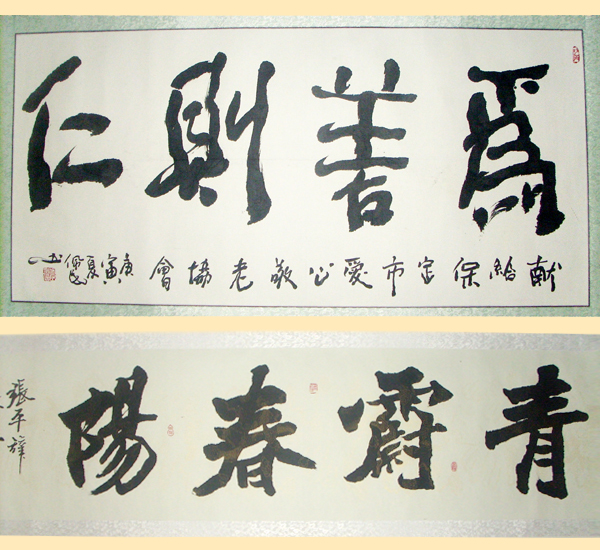 爲善則仁
献給保定市愛心敬老協會
庚寅夏
青 春陽
張平